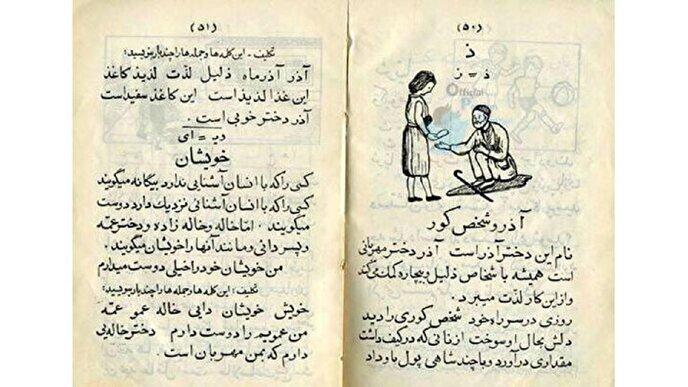 (۵۰)
ذ
ذ = ز
Official
آذر و شخص کور
نام این دختر آذر است آذر دختر مهربانی
است همیشه با شخاص ذلیل و بیچاره کمک میکند
و از این کار لذت میبرد .
روزی در سر راه خود شخص کوری را دید
دلش بحال او سوخت از نانی که در کیف داشت
مقداری در آورد و با چند شاهی پول با و داد
(۵۱)
تکلیف - این کلمه ها و جمله ها را چند بار بنویسید:
آذر آذر ماه ذلیل لذت لذید کاغذ
این غذا لذید است این کاغذ سفید است
آذر دختر خوبی است .
ای
خویشان
کسی را که با انسان آشنایی ندارد بیگانه میگویند
کسی را که با انسان آشنائی نزدیك دارد دوست
میگویند . اما خاله و خاله زاده و دختر عمه
و پسر دائی و مانند آنها را خویشان میگویند .
من خویشان خود را خیلی دوست میدارم
تکلیف: این کلمه ها و جمله ها را چند بار بنویسید:
خویش خویشان دایی خاله عمو عمه
من عمویم را دوست دارم دختر خاله یی
دارم که بمن مهربان است .